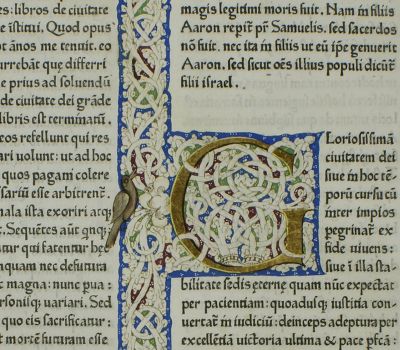 es: libros de ciuitate
e īstitui. Quod opus
ot ānos me tenuit. eo
urrebāt que differri
e prius ad soluendū
de ciuitate dei grāde
libris est terminatū.
eos refellunt qui res
ari uolunt: ut ad hoc
quos pagani colere
sariū esse arbitrent.
nala ista exoriri atq;
. Sequētes aūt qnq;
tur qui fatentur hęc
nquam nec defutura
t magna: nunc pua:
rsonisq; uariari. Sed
quo eis sacrificatur:
t morem futuram esse
magis legitimi moris fuit. Nam ī filiis
Aaron repit pr̄ Samuelis. sed sacerdos
nō fuit. nec ita ī filiis ut eū īpe genuerit
Aaron. sed sicut oēs illius populi dicūt
filii israel.
G Loriosissimā
ciuitatem dei
siue ī hoc tē-
porū cursu cū
īter impios
peregrinat ex
fide uiuens:
siue ī illa sta-
bilitate sedis eternę quam nūc expectat
per pacientiam: quoadusq; iustitia con-
uertat ī iudiciū: deinceps adeptura per
excellētiā uictoria ultima & pace pfca: